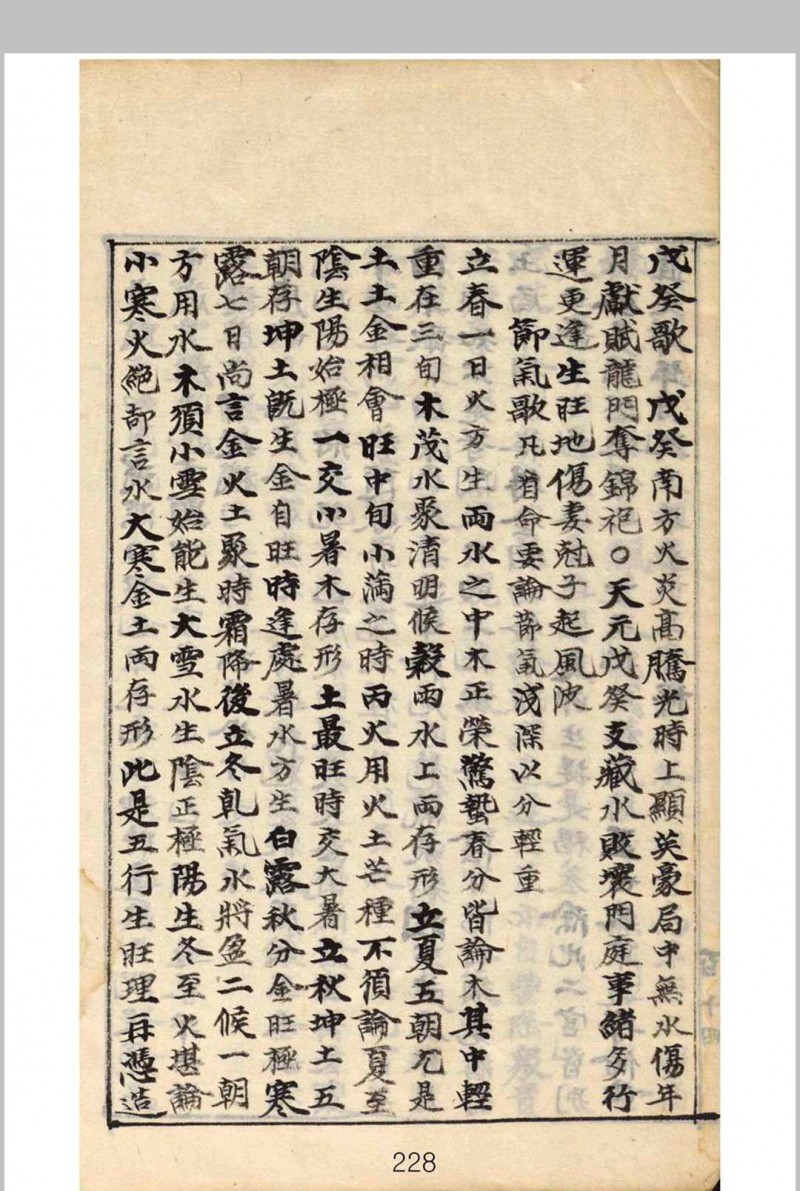 戊癸歌　戊癸南方火炎高騰光時上顯英豪局中無水傷年
月獻賦龍門奪錦袍〇天元戊癸支藏水敗壞門庭事緒多行
運更逢生旺地傷妻尅子起風波
節氣歌凡看命要論莭氣淺深以分輕重
立春一日火方生雨水之中木正榮驚蟄春分皆論木其中輕
重在三旬木茂水聚清明候穀雨水土兩存形立夏五朝尤是
土土金相會旺中旬小滿之時丙火用火土芒種不須論夏至
陰生陽始極一交小暑木存形土最旺時交大暑立秋坤土五
朝存坤土旣生金自旺時逢處暑水方生白露秋分金旺極寒
露七日尚言金火土聚時霜降後立冬乹氣水將盈二候一朝
方用水木須小雪始能生大雪水生陰正極陽生冬至火堪論
小寒火絕却言水大寒金土兩存形此是五行生旺理再憑造
228